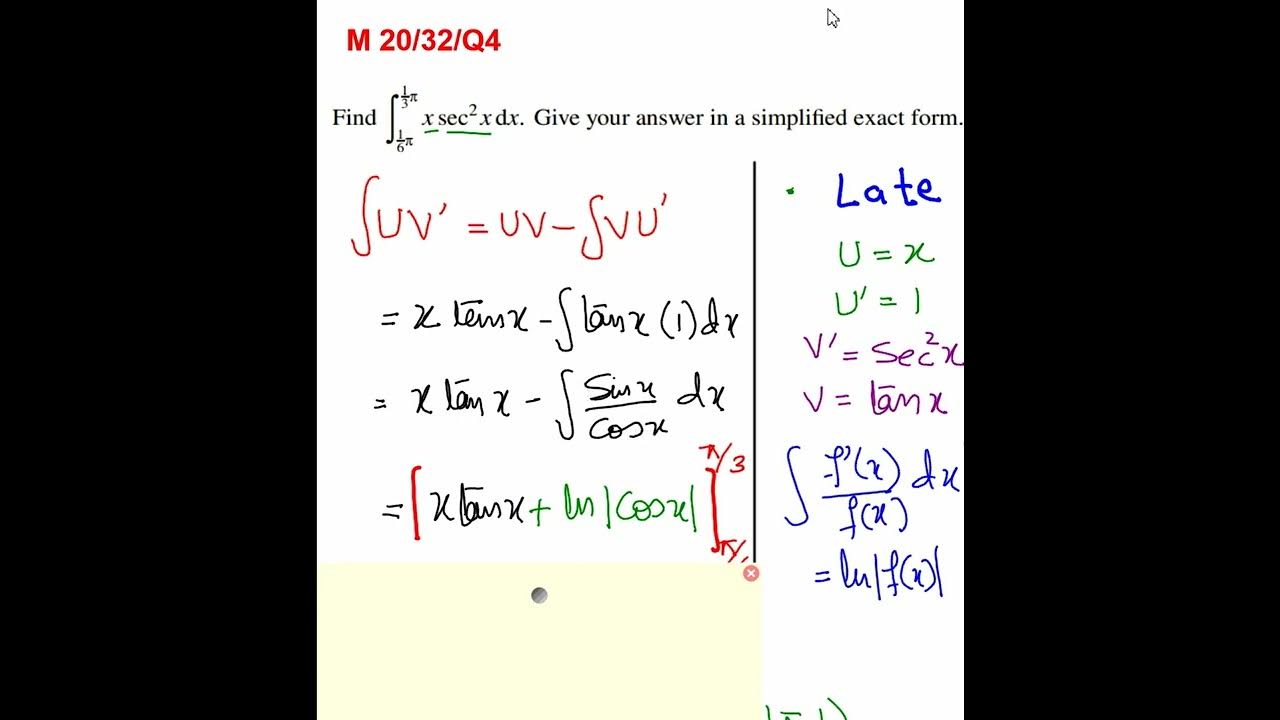 M 20/32/Q4
Find ∫_{1/6 π}^{1/3 π} x sec² x dx. Give your answer in a simplified exact form.
∫UV' = UV - ∫VU'
= x tan x - ∫tan x (1) dx
= x tan x - ∫ Sin x / Cos x dx
= [x tan x + ln |Cos x|]^{π/3}_{π/
Late
U = x
U' = 1
V' = Sec² x
V = tan x
∫ f'(x) / f(x) dx
= ln|f(x)|